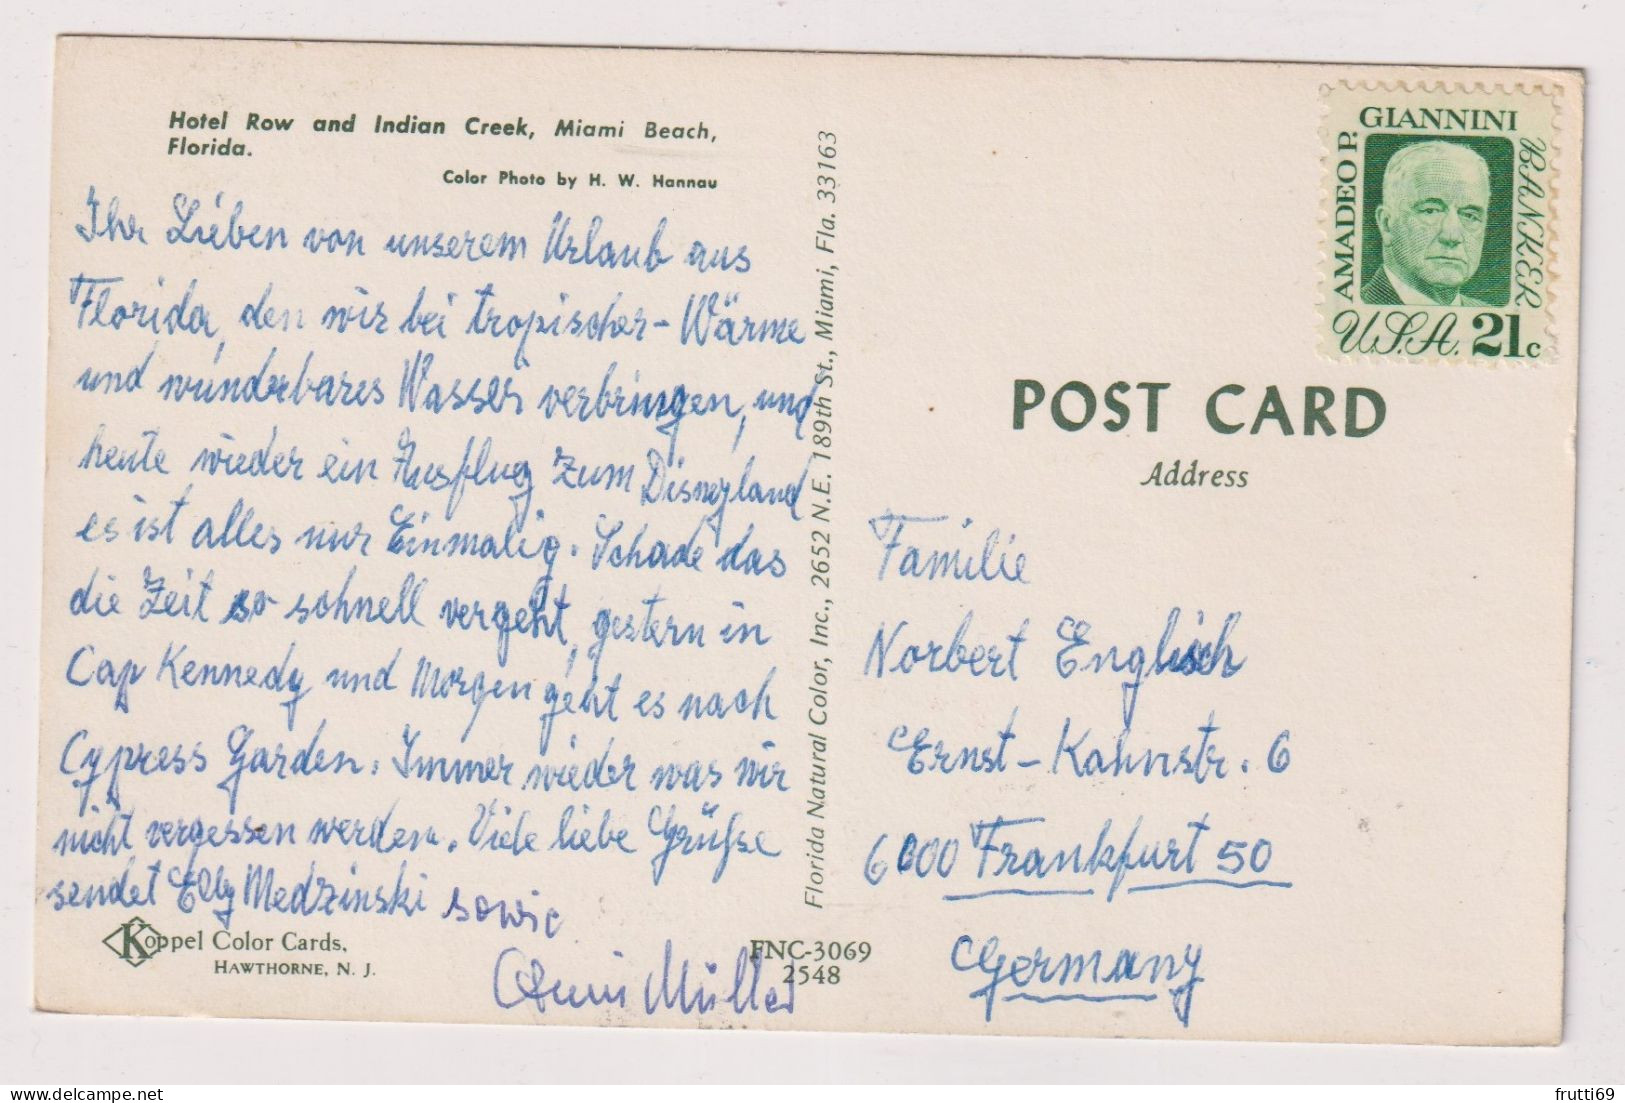 Hotel Row and Indian Creek, Miami Beach,
Florida.
Color Photo by H. W. Hannau
Ihr Lieben von unserem Urlaub aus
Florida, den wir bei tropischer- Wärme
und wunderbares Wasser verbringen, und
heute wieder ein Ausflug zum Disneyland
es ist alles nur Einmalig. Schade das
die Zeit so schnell vergeht, gestern in
Cap Kennedy und Morgen geht es nach
Cypress Garden. Immer wieder was wir
nicht vergessen werden. Viele liebe Grüße
sendet Elly Medzinski sowie
Müller
Koppel Color Cards,
HAWTHORNE, N. J.
FNC-3069
2548
Florida Natural Color, Inc., 2652 N.E. 189th St., Miami, Fla. 33163
AMADEO P.
GIANNINI
BANKER
U.S.A. 21c
POST CARD
Address
Familie
Norbert Englisch
Ernst-Kahnstr. 6
6000 Frankfurt 50
Germany
frutti69